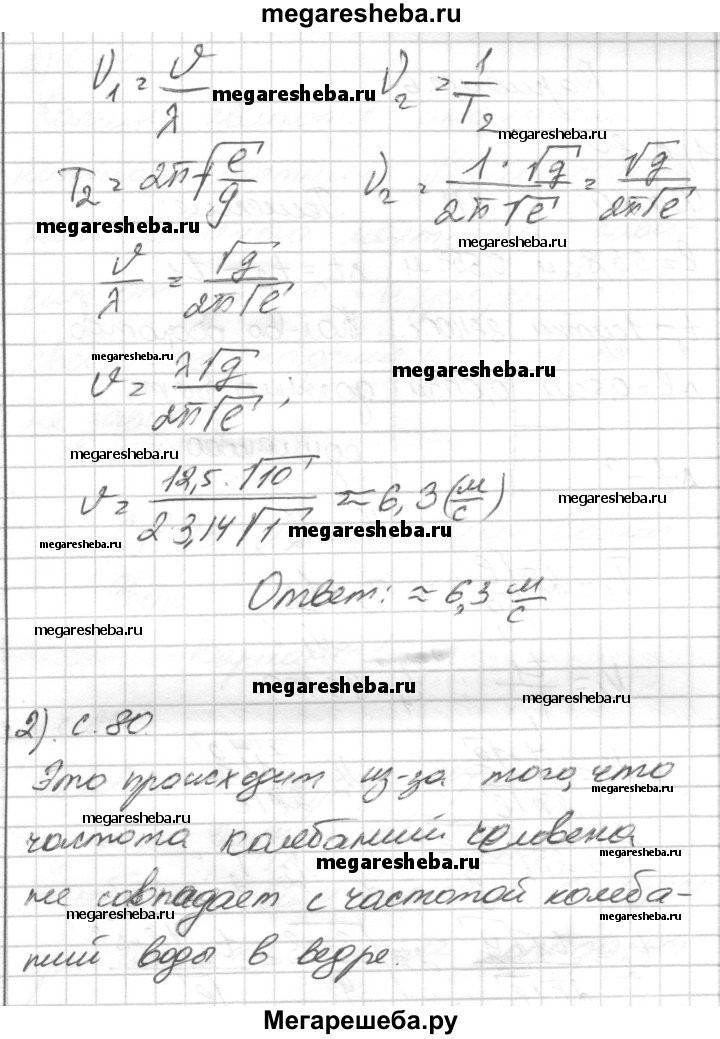 megaresheba.ru
ν₁ = ϑ/λ megaresheba.ru ν₂ = 1/T₂
megaresheba.ru
T₂ = 2π√(ℓ/g) ν₂ = 1·√g/2π√ℓ = √g/2π√ℓ
megaresheba.ru
megaresheba.ru
ϑ/λ = √g/2π√ℓ
megaresheba.ru
megaresheba.ru
ϑ = λ√g/2π√ℓ;
megaresheba.ru
ϑ = 12,5·√10/2·3,14√1 ≈ 6,3 (м/с)
megaresheba.ru
megaresheba.ru
megaresheba.ru
Ответ: ≈ 6,3 м/с
megaresheba.ru
megaresheba.ru
megaresheba.ru
2). с. 80
Это происходит из-за того, что
megaresheba.ru
megaresheba.ru
частота колебаний человека
megaresheba.ru
megaresheba.ru
не совпадает с частотой колеба-
megaresheba.ru
megaresheba.ru
ний воды в ведре.
Мегарешеба.ру